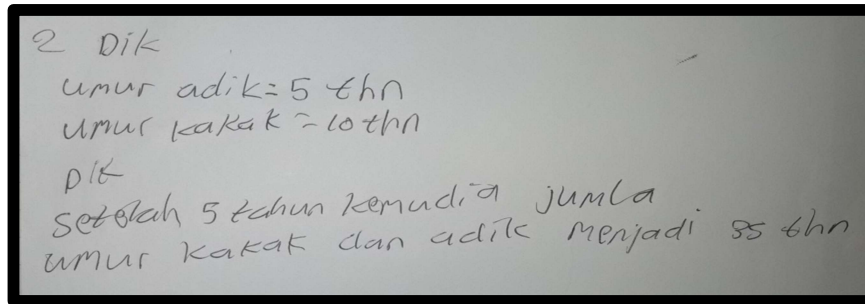 2 Dik
umur adik = 5 thn
umur kakak = 10 thn
Dik
setelah 5 tahun kemudia jumla
umur kakak dan adik menjadi 35 thn